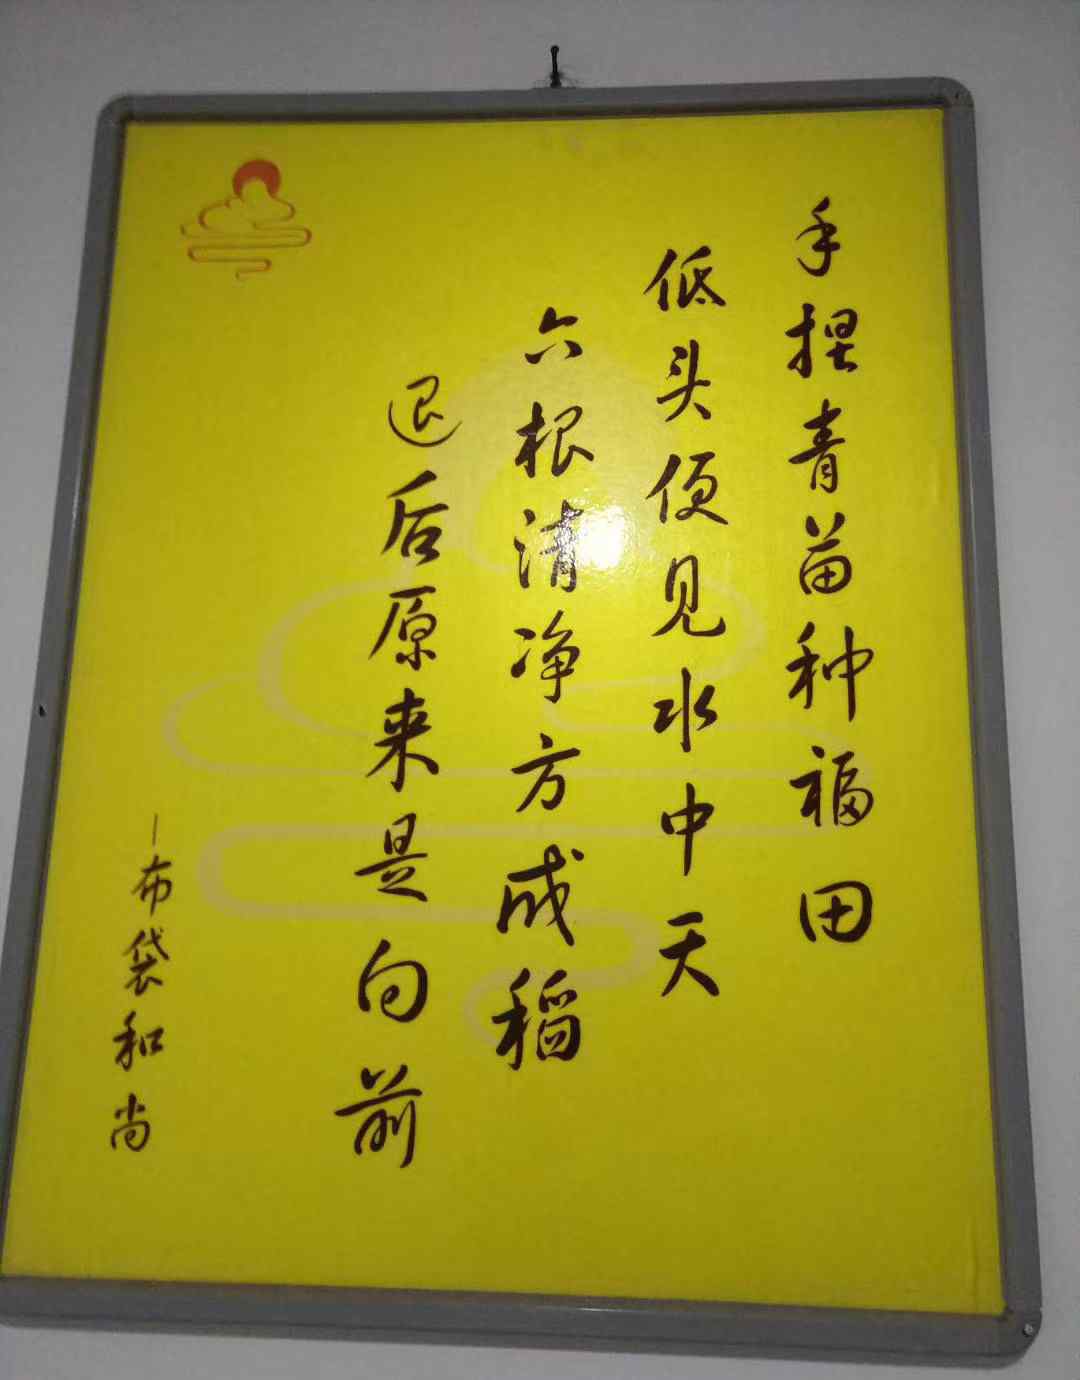 手捏青苗种福田
低头便见水中天
六根清净方成稻
退后原来是向前
—布袋和尚